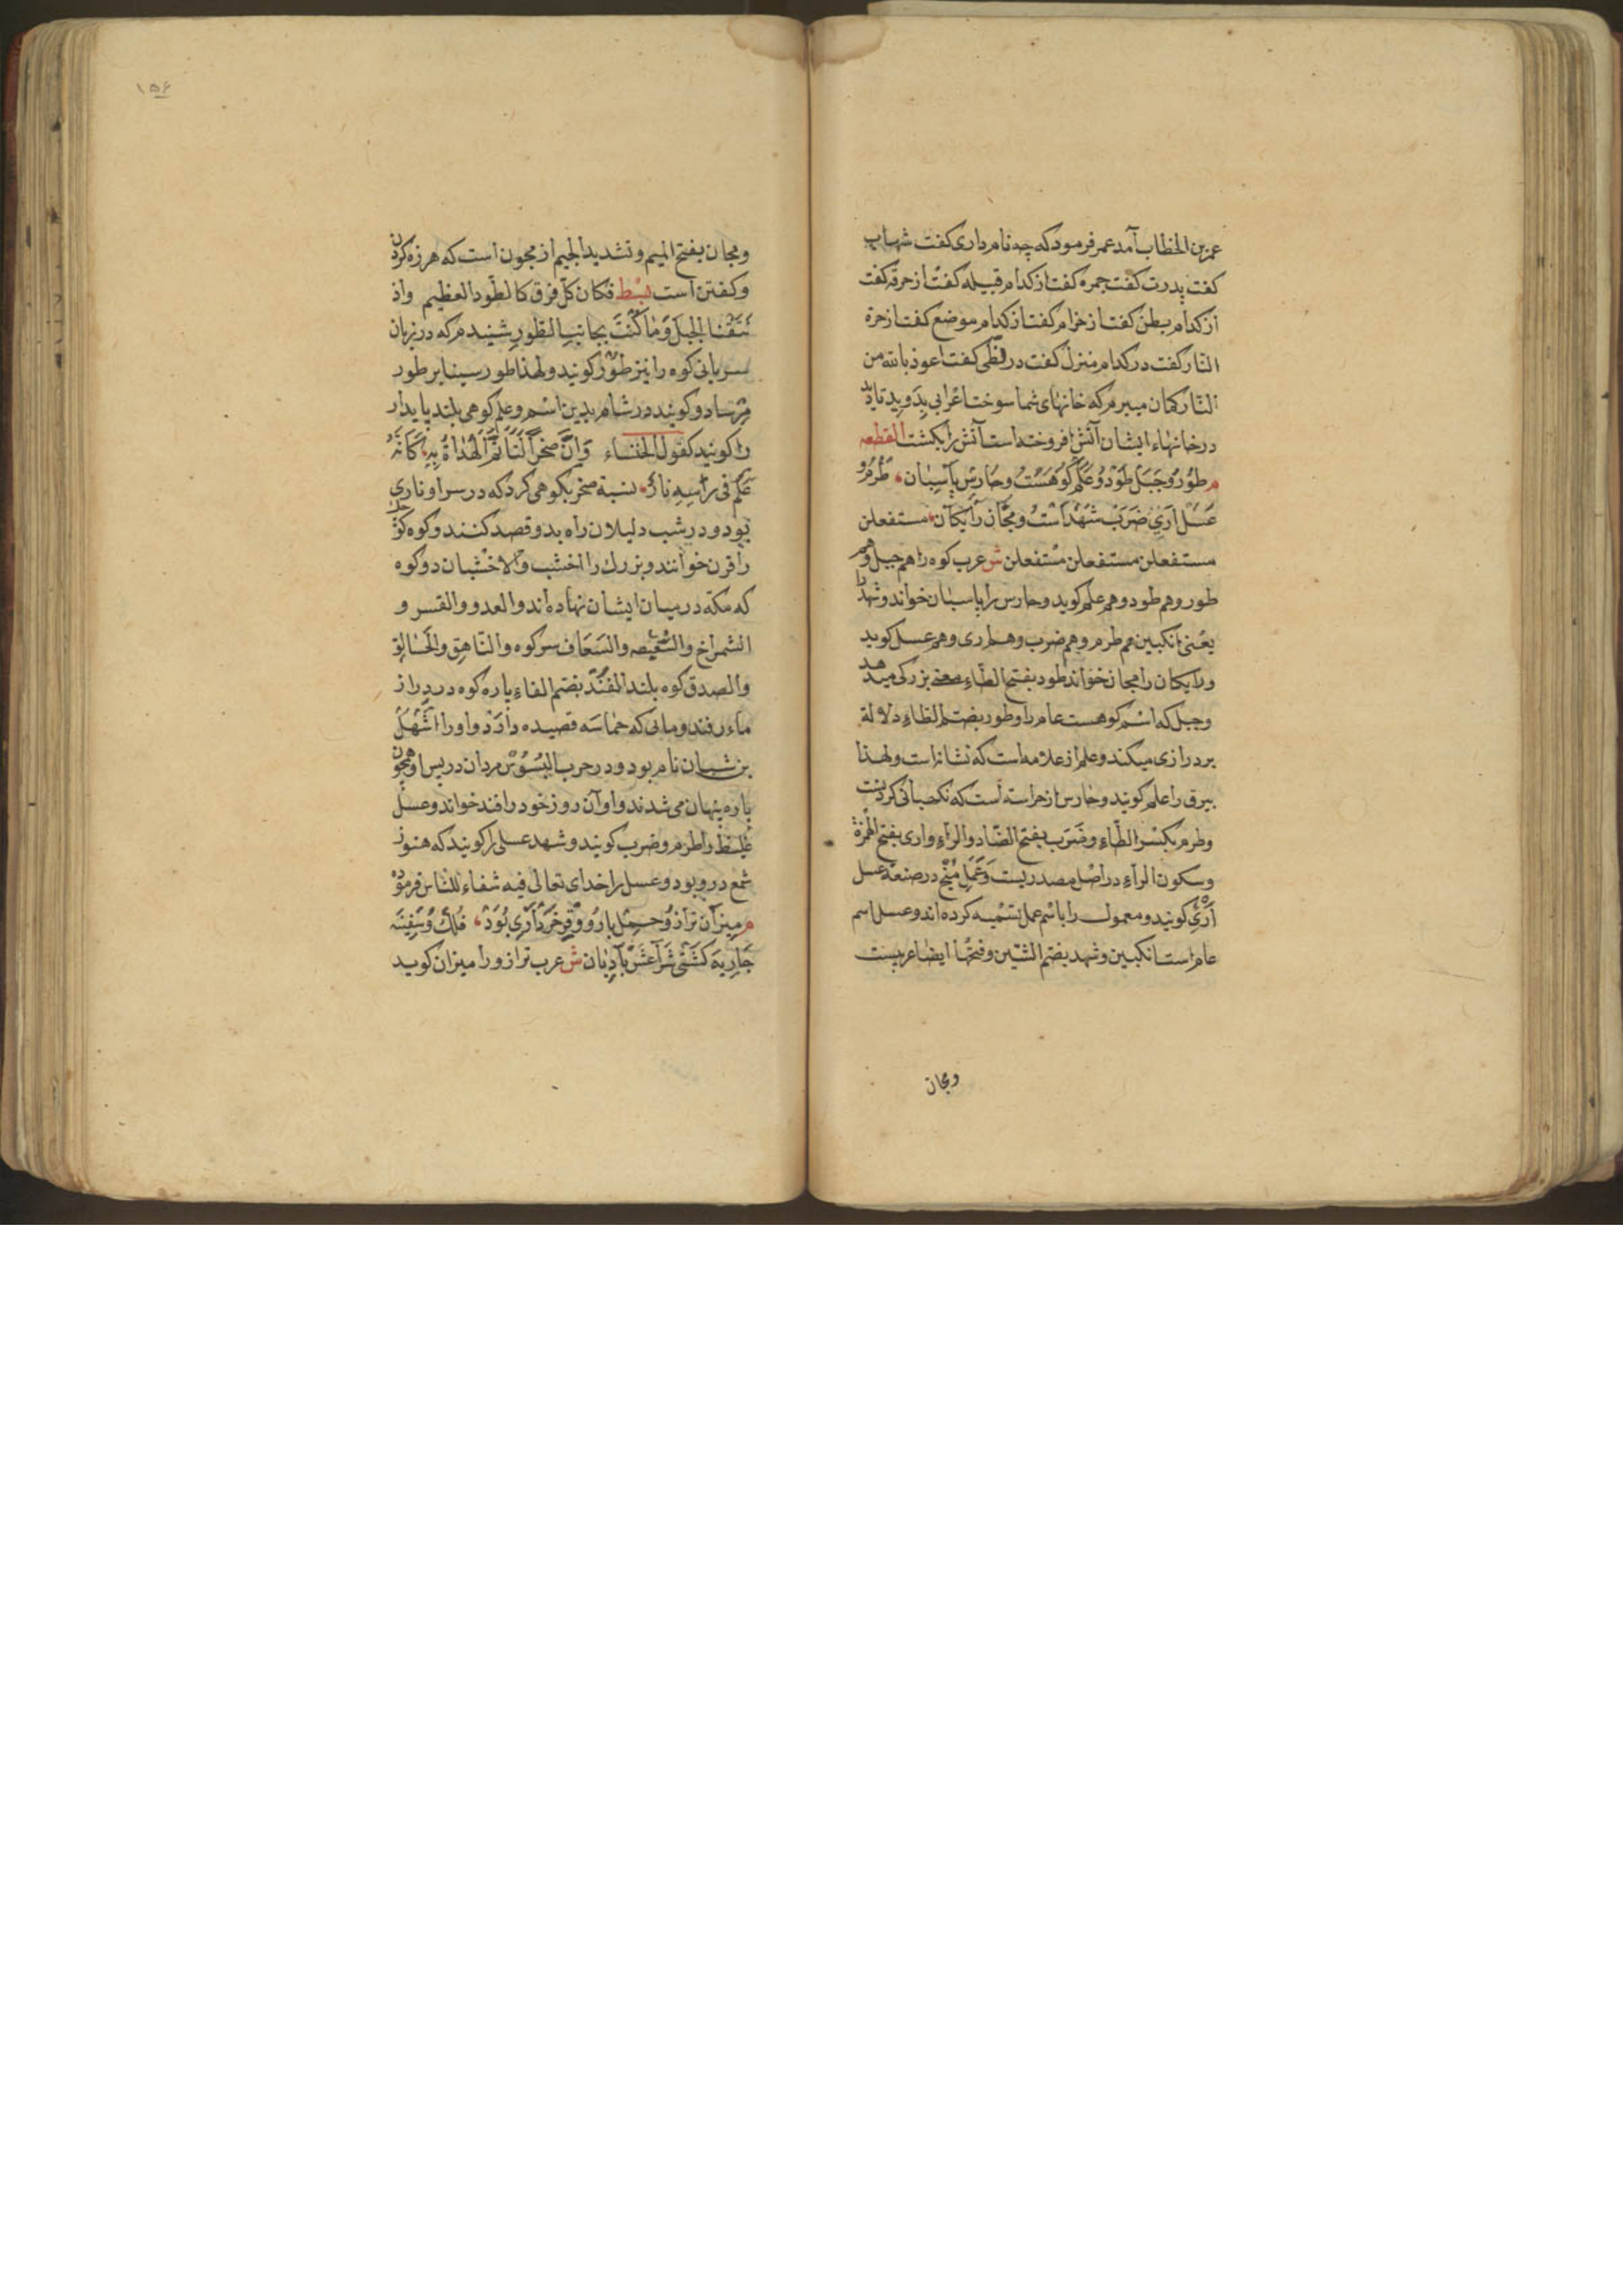 عمر بن الخطاب آمد عمر فرمود که چه نام داری کفت شهاب
کفت پدرت کفت جمره کفت از کدام قبیله کفت از حرقه کفت
از کدام بطن کفت از خرام کفت از کدام موضع کفت از حرة
النار کفت در کدام منزل کفت در لظی کفت اعوذ بالله من
النار کمان میبرم که خانهای شما سوخت اعرابی بدوید تا دید
در خانهاء ایشان آتش افروخته است آتش را بکشت القطعه
م طور و جبل طود و علم کوهست و حارس پاسبان طرم و
عسل اری ضرب شهد است و مجان رایکان مستفعلن
مستفعلن مستفعلن مستفعلن ش عرب کوه را هم جبل و هم
طور و هم طود و هم علم کوید و حارس را پاسبان خواند و شهد را
یعنی انکبین هم طرم و هم ضرب و هم اری و هم عسل کوید
و رایکان را مجان خواند طود بفتح الطاء معنی بزرکی میدهد
و جبل که اسم کوهست عام را و طور بضم الطاء دلالة
بر درازی میکند و علم از علامه است که نشانراست و لهذا
بیرق را علم کویند و حارس از حراسه است که نکهبانی کردنست
و طرم بکسر الطاء و ضرب بفتح الضاد و الراء و اری بفتح الهمزة
و سکون الراء در اصل مصدریست و عمل منج در صنعة عسل
اری کویند و معمول را باسم عمل تسمیه کرده اند و عسل اسم
عام است انکبین و شهد بضم الشین و فتحها ایضا عربیست
و مجان
۱۵۶
و مجان بفتح المیم و تشدید الجیم از مجون است که هرزه کردن
و کفتن است بسط فکان کل فرق کالطود العظیم و اذ
نتقنا الجبل و ما کنت بجانب الطور شنیدم که در زبان
سریانی کوه را نیز طور کویند و لهذا طور سینا بر طور
کویند در شام بدین اسم و علم کوهی بلند پایدار
را کویند کقول الخنساء و ان صخرا لتاتم الهداة به کانه
علم فی راسه نار نسبة صخر بکوهی کرد که در سر او ناری
بود و در شب دلیلان راه بدو قصد کنند و کوه
را قرن خوانند و بزرک را اخشب و الاخشبان دو کوه
که مکه در میان ایشان نهاده اند و العدو و القسر و
الشمراخ و و السعاف سر کوه و الناهق و الحالق
و الصدق کوه بلند الفند بضم الفاء پاره کوه در دراز
ماء رفند و مانی که حماسه قصیده دارد و او را شهل
بن شیبان نام بود و در حرب البسوس مردان در پس او همچون
پاره پنهان می شدند و او آن روز خود را فند خواند و عسل
غلیظ را طرم و ضرب کویند و شهد عسلی را کویند که هنوز
شمع درو بود و عسل را خدای تعالی فیه شفاء للناس فرموده
م میزان ترازو حمل بار و وقر خرواری بود فلک و سفینه
جاریه کشتی شراعش بادبان ش عرب ترازو را میزان کوید